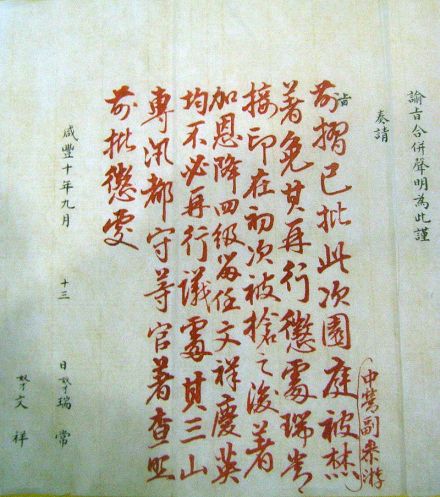 諭旨合併聲明為此謹
奏請
旨
中營副叅游
前摺已批此次園庭被焚
著免其再行懲處瑞常
接印在初次被搶之後著
加恩降四級留任文祥慶英
均不必再行議處其三山
專汛都守等官著查照
前批懲處
咸豐十年九月 十三 日奴才瑞常
奴才文祥